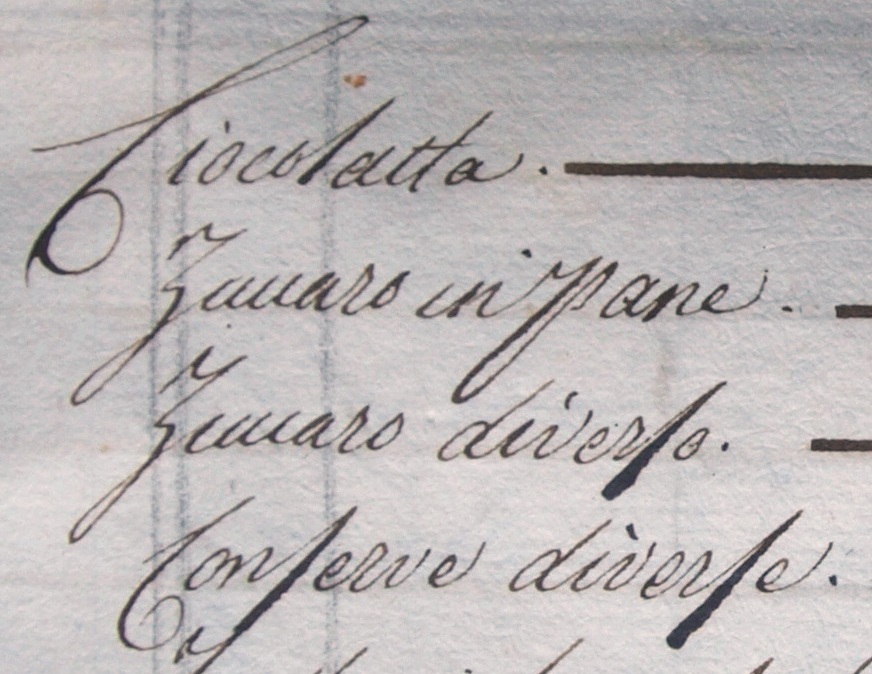 Ciocolatta.
Zuccaro in pane.
Zuccaro diverso.
Conserve diverse.